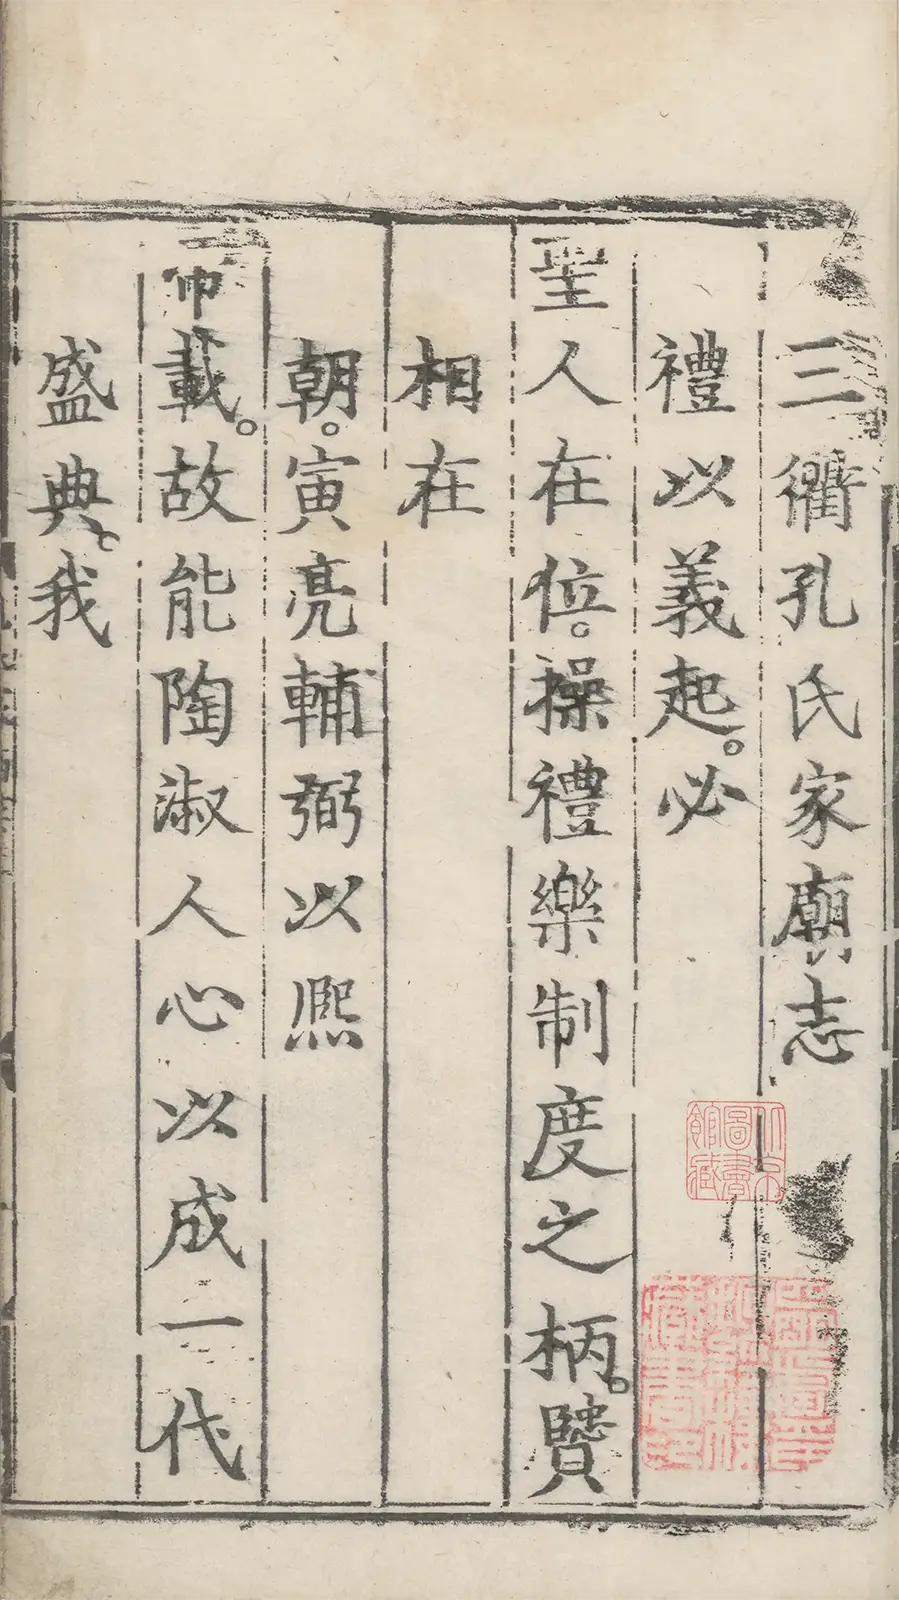 三衢孔氏家廟志
禮以義起。必
聖人在位。操禮樂制度之柄。賢
相在
朝。寅亮輔弼以熈
帝載。故能陶淑人心以成一代
盛典。我
圖書
館藏